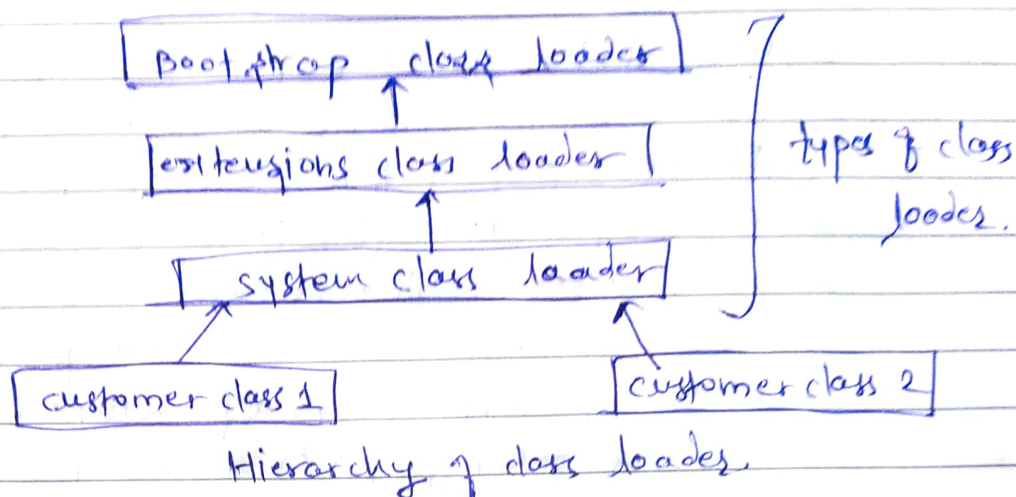 Bootstrap class loader
extensions class loader
types of class
loader.
system class loader
customer class 1
customer class 2
Hierarchy of class loader.